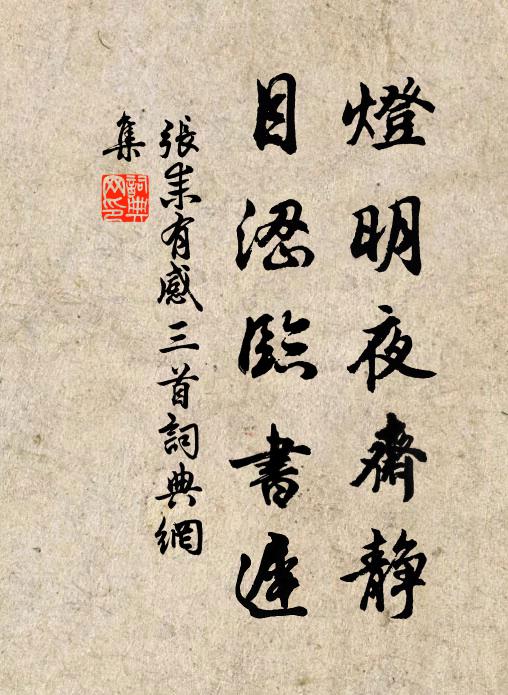 燈明夜齋靜
目澀臨書遲
張耒有感三首詞典網
集
詞典
网印